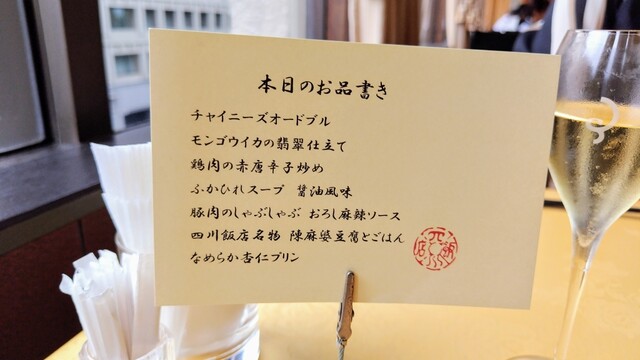 本日のお品書き
チャイニーズオードブル
モンゴウイカの翡翠仕立て
鶏肉の赤唐辛子炒め
ふかひれスープ 醤油風味
豚肉のしゃぶしゃぶ おろし麻辣ソース
四川飯店名物 陳麻婆豆腐とごはん
なめらか杏仁プリン